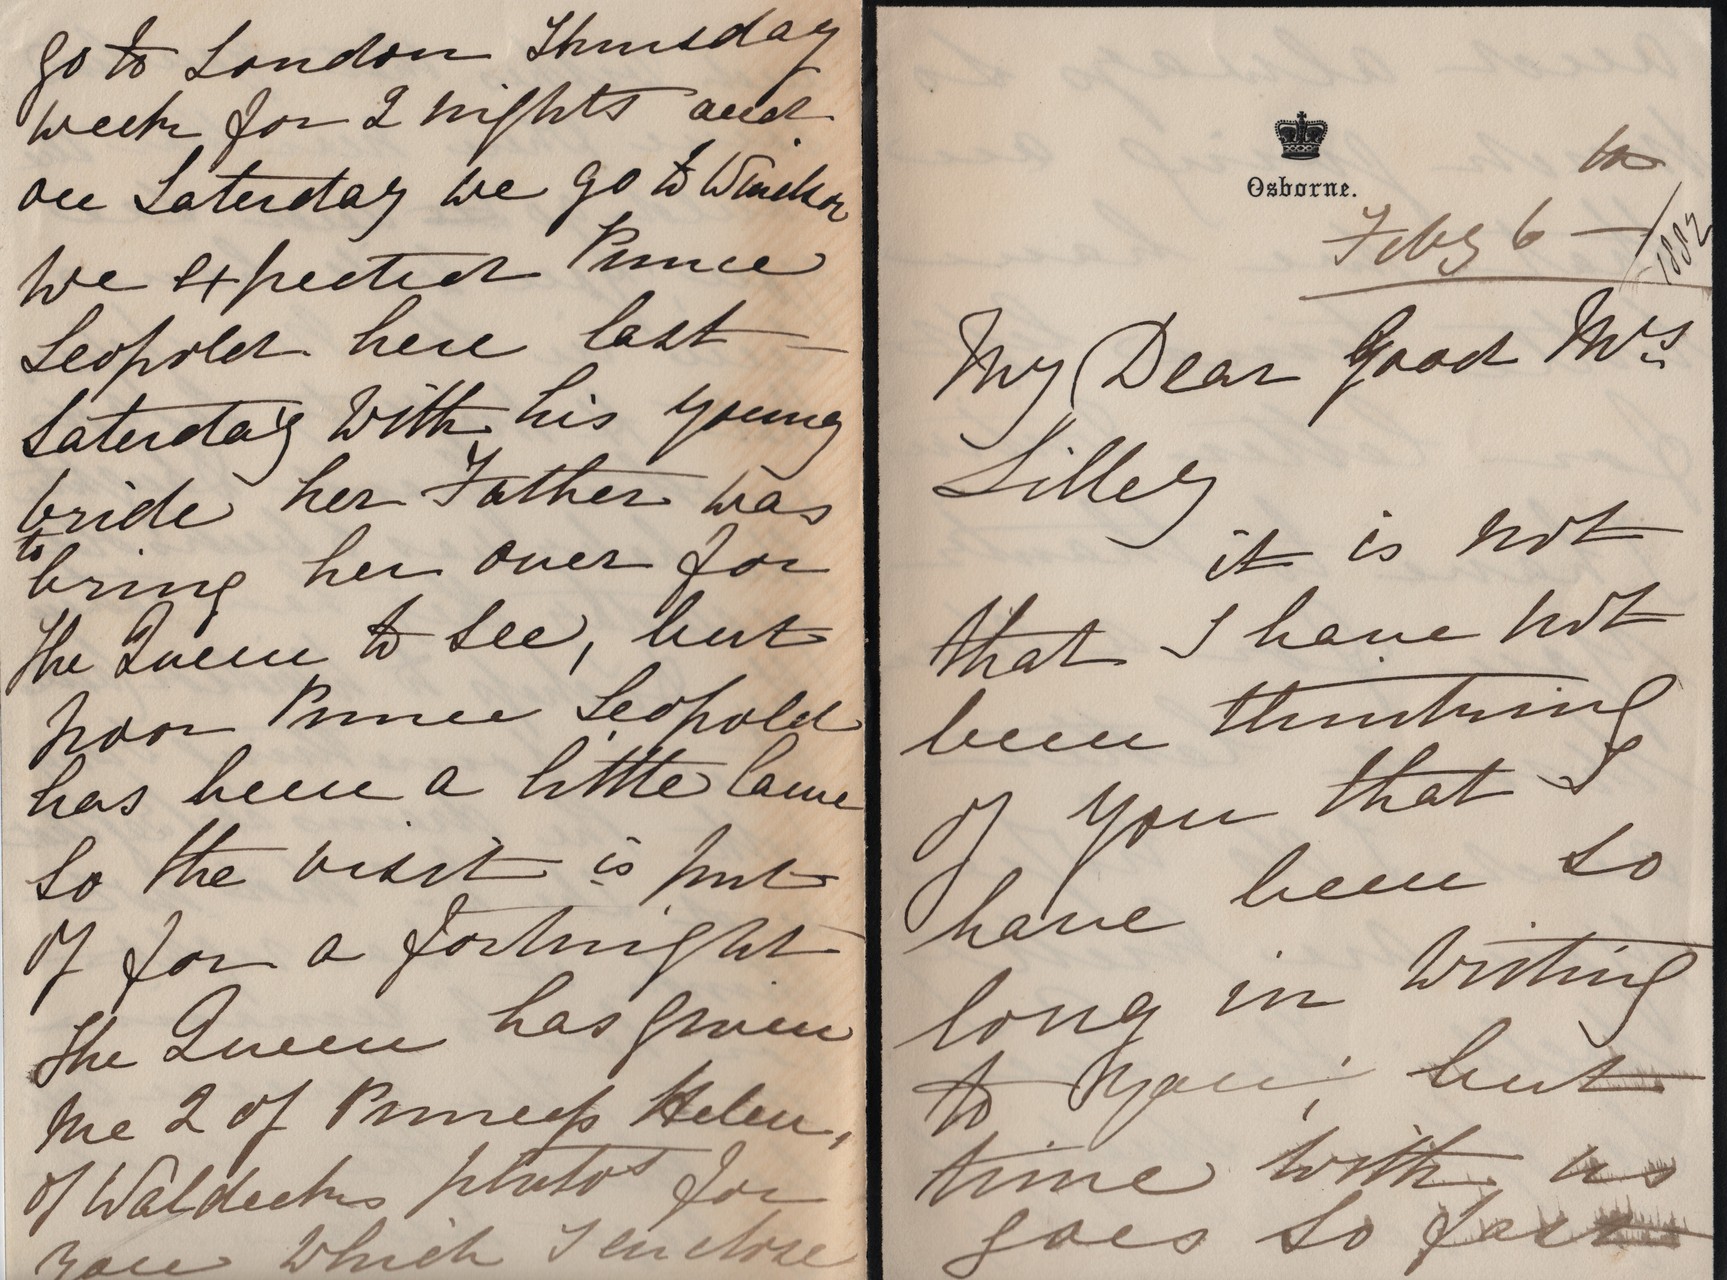 go to London Thursday
week for 2 nights and
on Saturday we go to Windsor
we expected Prince
Leopold here last —
Saturday with his young
bride her Father was
to
bring her over for
the Queen to see, but
poor Prince Leopold
has been a little lame
so the visit is put
of for a fortnight
the Queen has given
me 2 of Princess Helen,
of Waldecks photos for
you which I enclose
Osborne.
Feby 6 —
/1882
My Dear Good Mrs
Lilley
it is not
that I have not
been thinking
of you that I
have been so
long in writing
to you, but
time with us
goes so fast